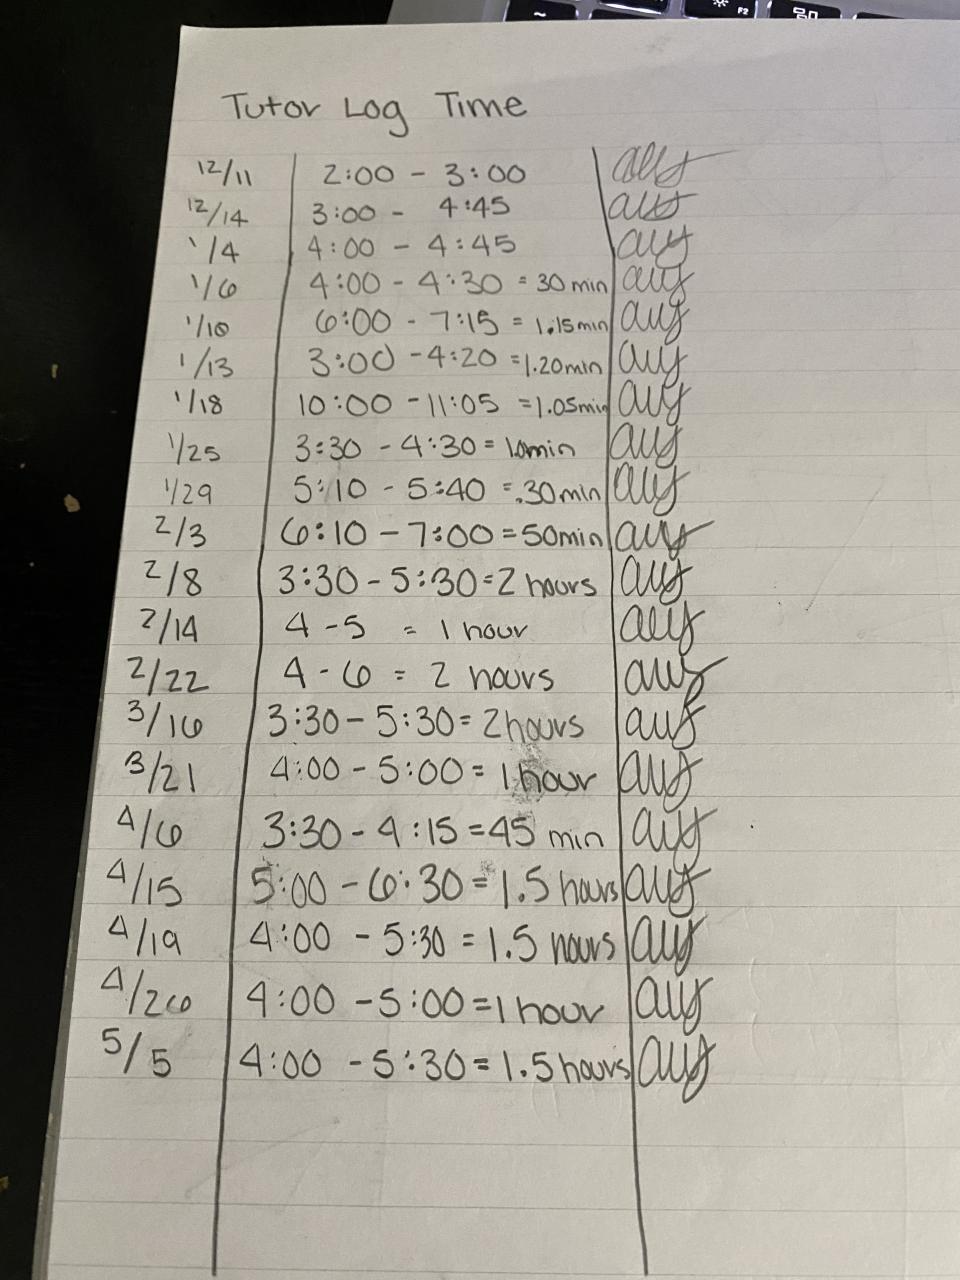 F2
Tutor Log Time
12/11 2:00 - 3:00
12/14 3:00 - 4:45
1/4 4:00 - 4:45
1/6 4:00 - 4:30 = 30 min
1/10 6:00 - 7:15 = 1.15min
1/13 3:00 - 4:20 = 1.20min
1/18 10:00 - 11:05 = 1.05min
1/25 3:30 - 4:30 = 1.0min
1/29 5:10 - 5:40 = .30min
2/3 6:10 - 7:00 = 50min
2/8 3:30 - 5:30 = 2 hours
2/14 4 - 5 = 1 hour
2/22 4 - 6 = 2 hours
3/16 3:30 - 5:30 = 2 hours
3/21 4:00 - 5:00 = 1 hour
4/6 3:30 - 4:15 = 45 min
4/15 5:00 - 6:30 = 1.5 hours
4/19 4:00 - 5:30 = 1.5 hours
4/26 4:00 - 5:00 = 1 hour
5/5 4:00 - 5:30 = 1.5 hours